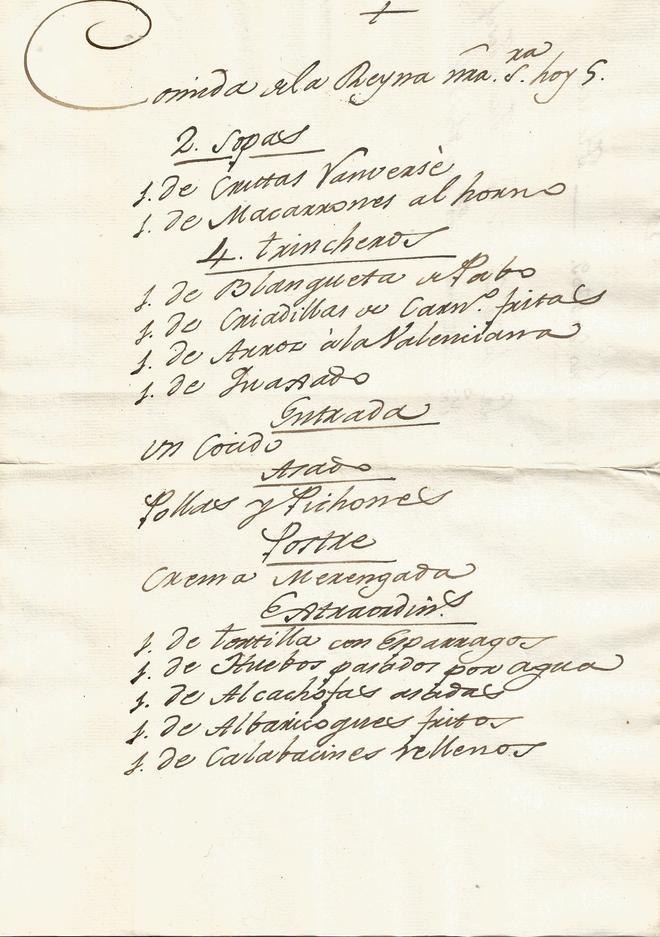 +
Comida de la Reyna nra. S.ra hoy 5.
2. Sopas
1. de Crustas Vanversè
1. de Macarrones al horno
4. trincheros
1. de Blangueta de Pabo
1. de Criadillas de Carn.o fritas
1. de Arroz à la Valenciana
1. de Guasado
Entrada
Un Cocido
Asado
Pollas y Pichones
Postre
Crema Merengada
Extraordin.s
1. de tortilla con Esparragos
1. de Huebos pasados por agua
1. de Alcachofas asadas
1. de Albaricoques fritos
1. de Calabacines rellenos